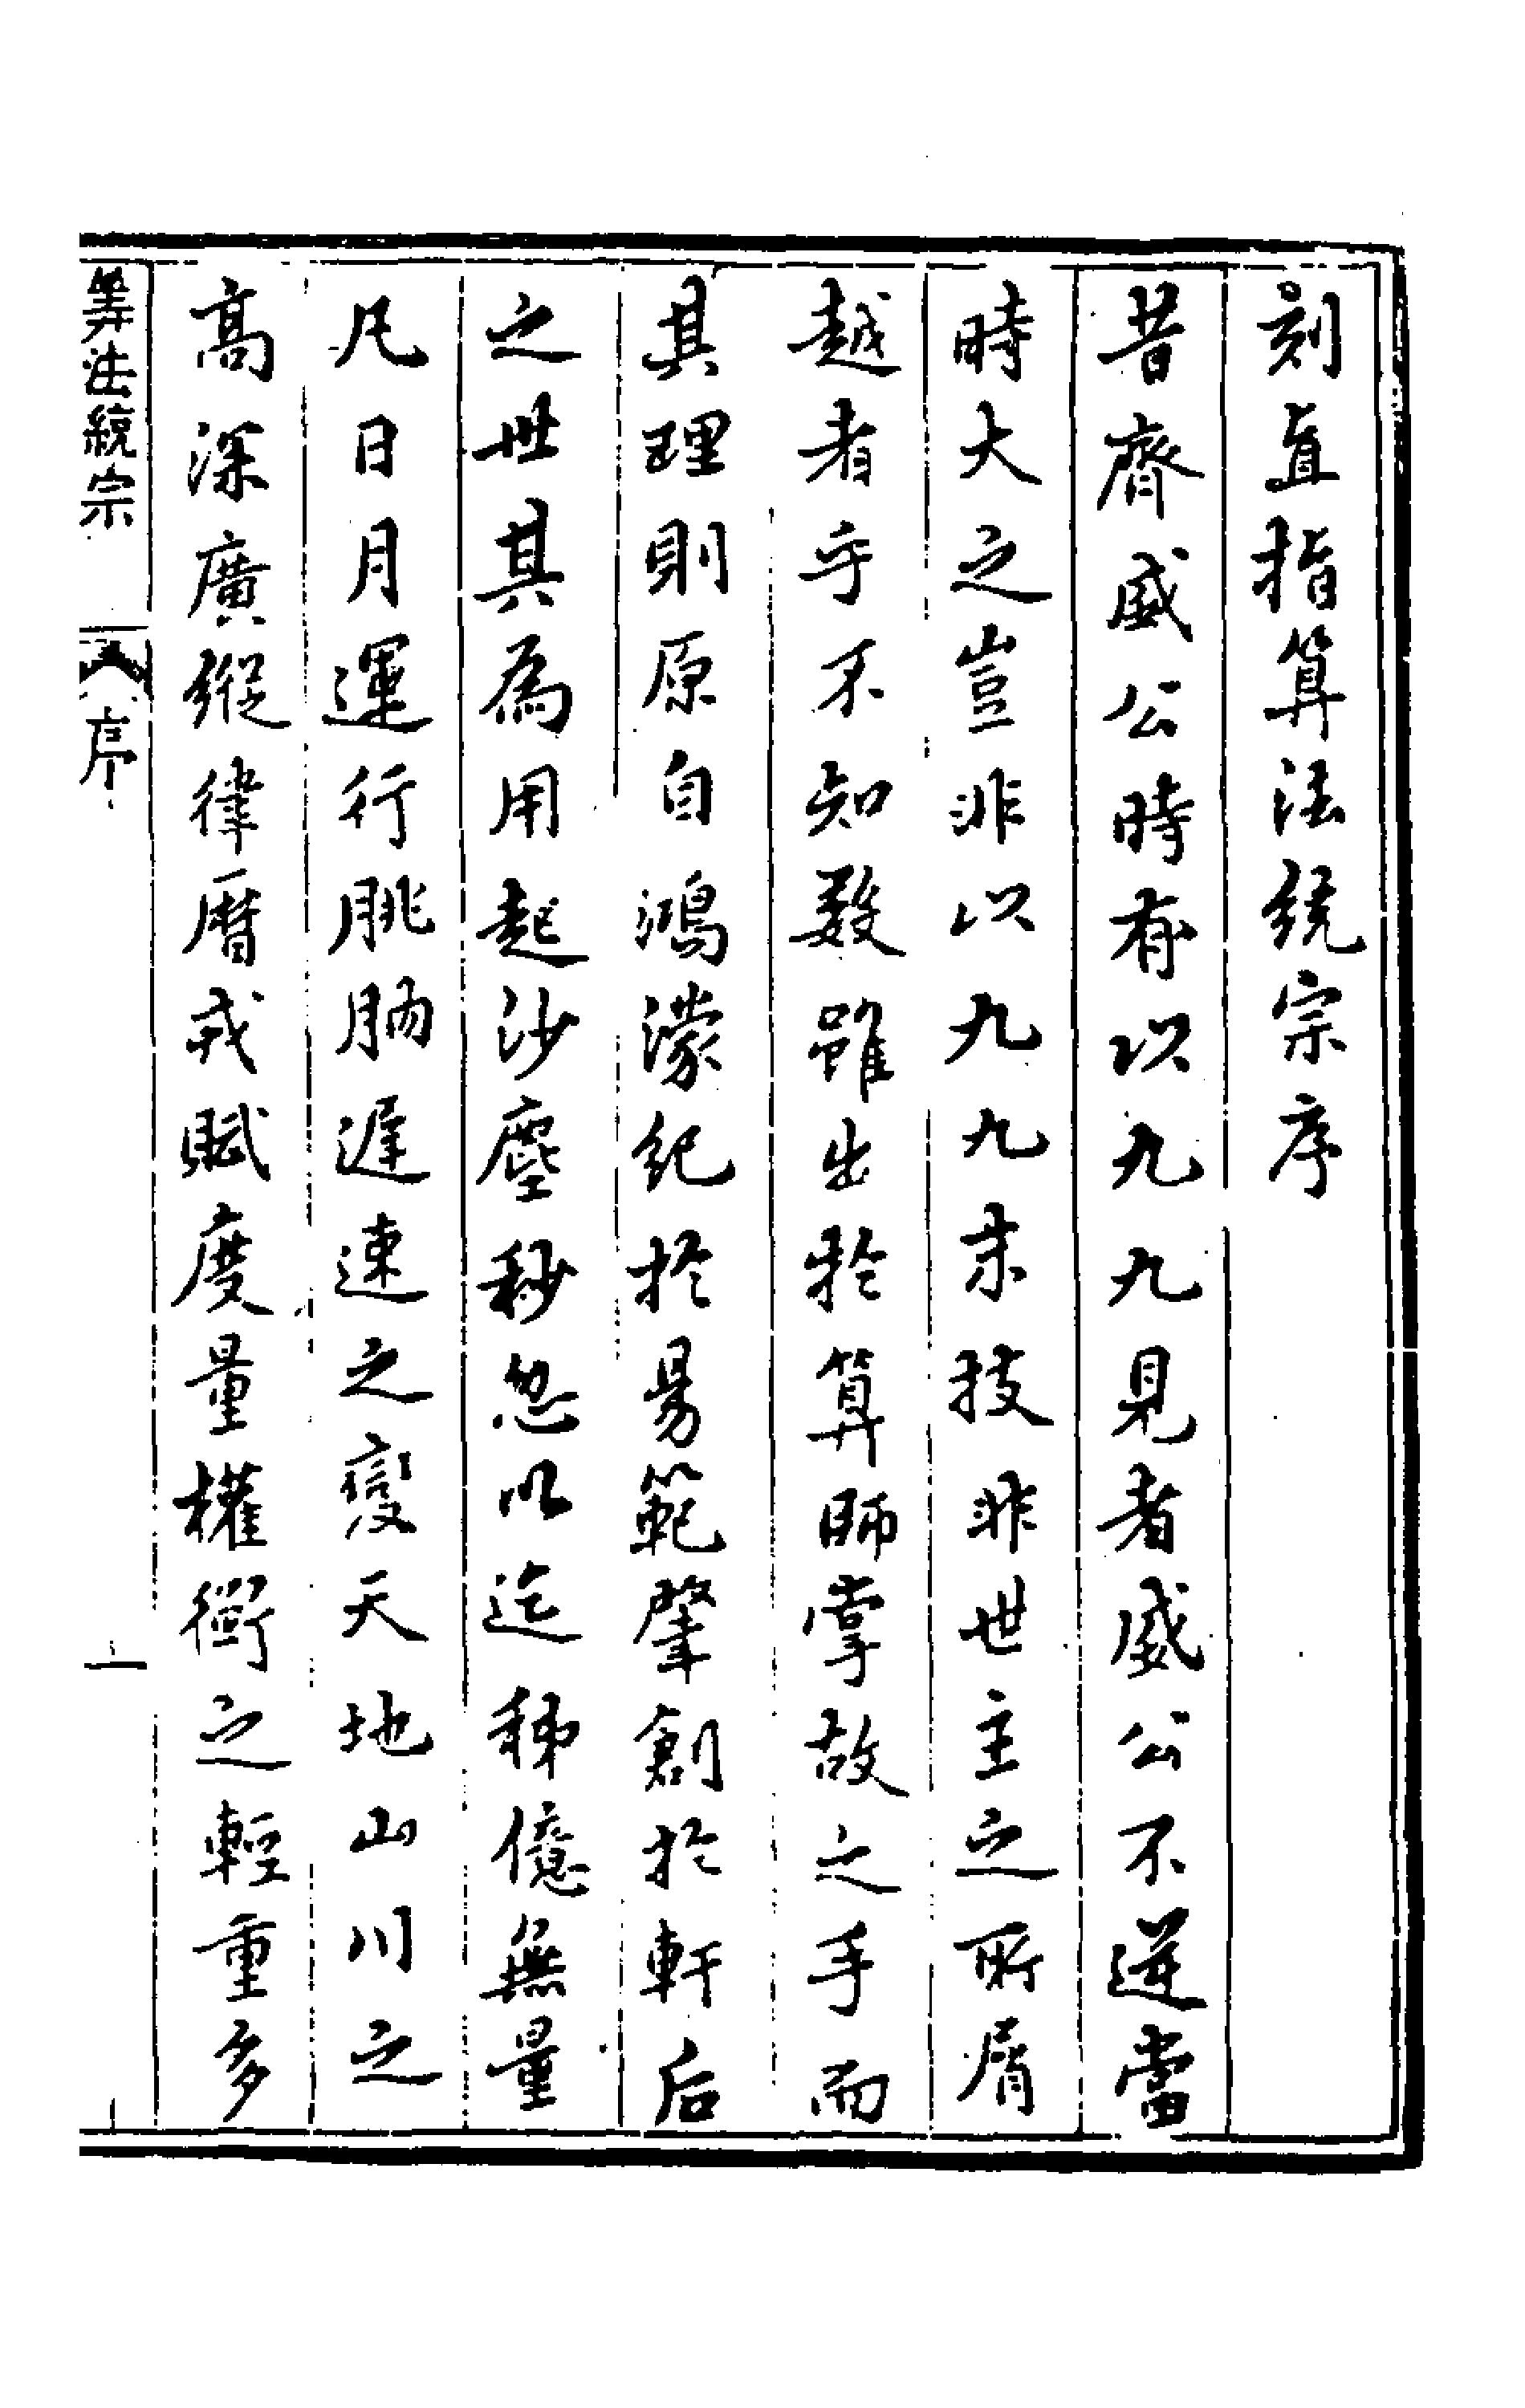 刻直指算法統宗序
昔齊威公時有以九九見者威公不逆當
時大之豈非以九九末技非世主之所屑
越者乎不知數雖出於算師掌故之手而
其理則原自鴻濛紀於易範肇創於軒后
之世其為用起沙塵秒忽以迄秭億無量
凡日月運行朓朒遲速之變天地山川之
高深廣縱律曆戎賦度量權衡之輕重多
筭法統宗
序
一